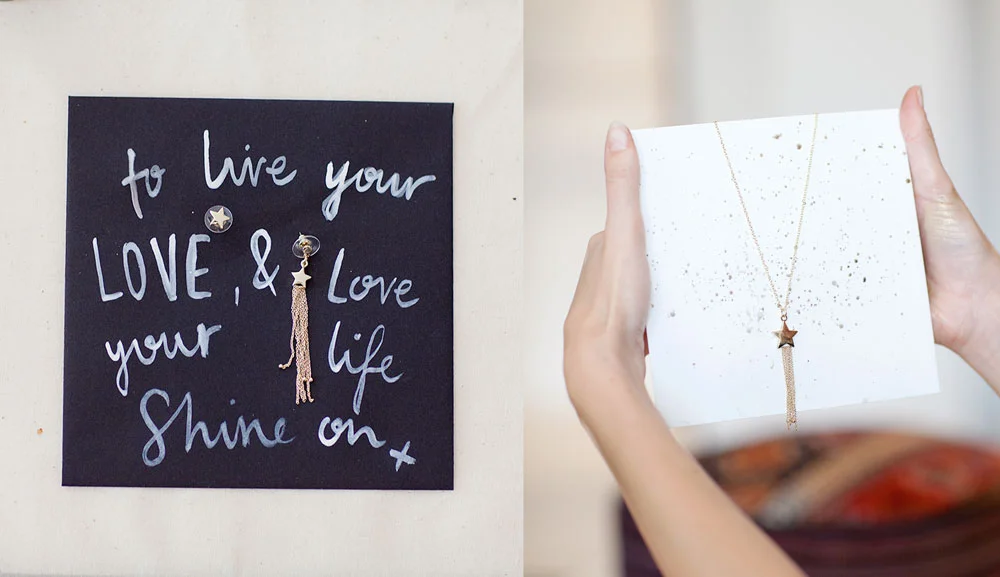 to live your
LOVE, & Love
your life
Shine on +